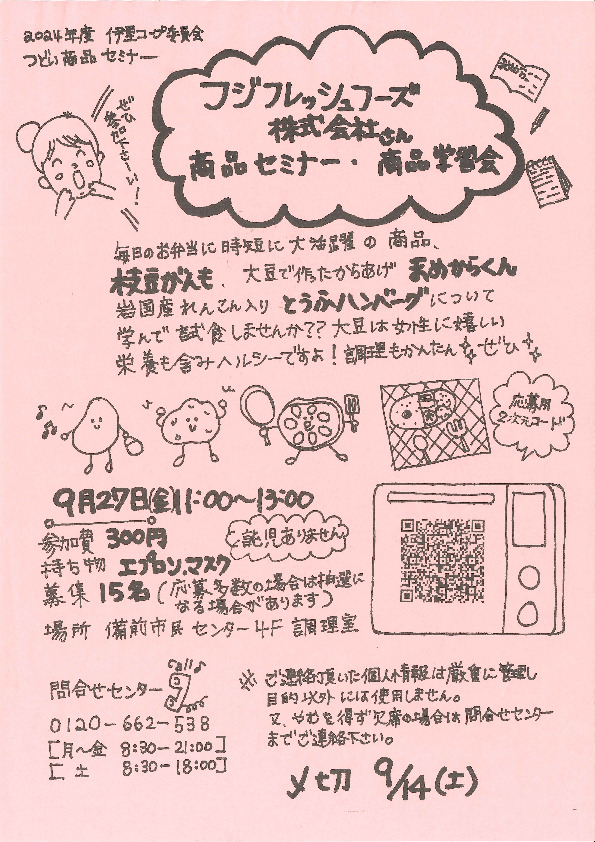 2024年度 伊里コープ委員会
つどい商品セミナー
ぜひ
参加下さーい!
フジフレッシュフーズ
株式会社さん
商品セミナー・商品学習会
毎日のお弁当に時短に大活躍の商品、
枝豆がんも、大豆で作ったからあげ まめからくん
岩国産れんこん入り とうふハンバーグについて
学んで試食しませんか?? 大豆は女性に嬉しい
栄養も含みヘルシーですよ!調理もかんたん ぜひ
応募用
2次元コード
9月27日(金)11:00〜13:00
参加費 300円
託児ありません
持ち物 エプロン、マスク
募集 15名(応募多数の場合は抽選に
なる場合があります)
場所 備前市民センター4F 調理室
Call
問合せセンター
0120-662-538
[月〜金 8:30-21:00]
[土 8:30-18:00]
※ ご連絡頂いた個人情報は厳重に管理し
目的以外には使用しません。
又、やむを得ず欠席の場合は問合せセンター
までご連絡下さい。
〆切 9/14(土)